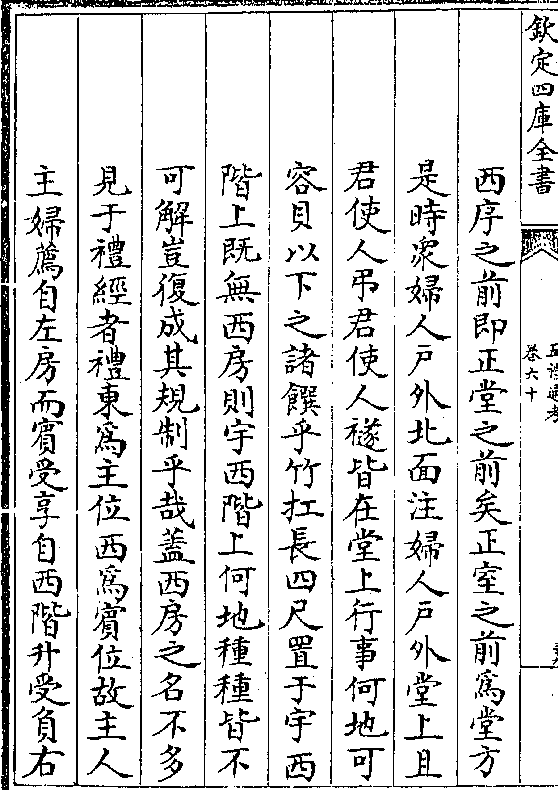 欽定四庫全書
五禮通考
卷六十
西序之前即正堂之前矣正室之前爲堂方
是時衆婦人戶外北面注婦人戶外堂上且
君使人弔君使人襚皆在堂上行事何地可
容貝以下之諸饌乎竹扛長四尺置于宇西
階上既無西房則宇西階上何地種種皆不
可解豈復成其規制乎哉蓋西房之名不多
見于禮經者禮東爲主位西爲賓位故主人
主婦薦自左房而賓受享自西階升受負右